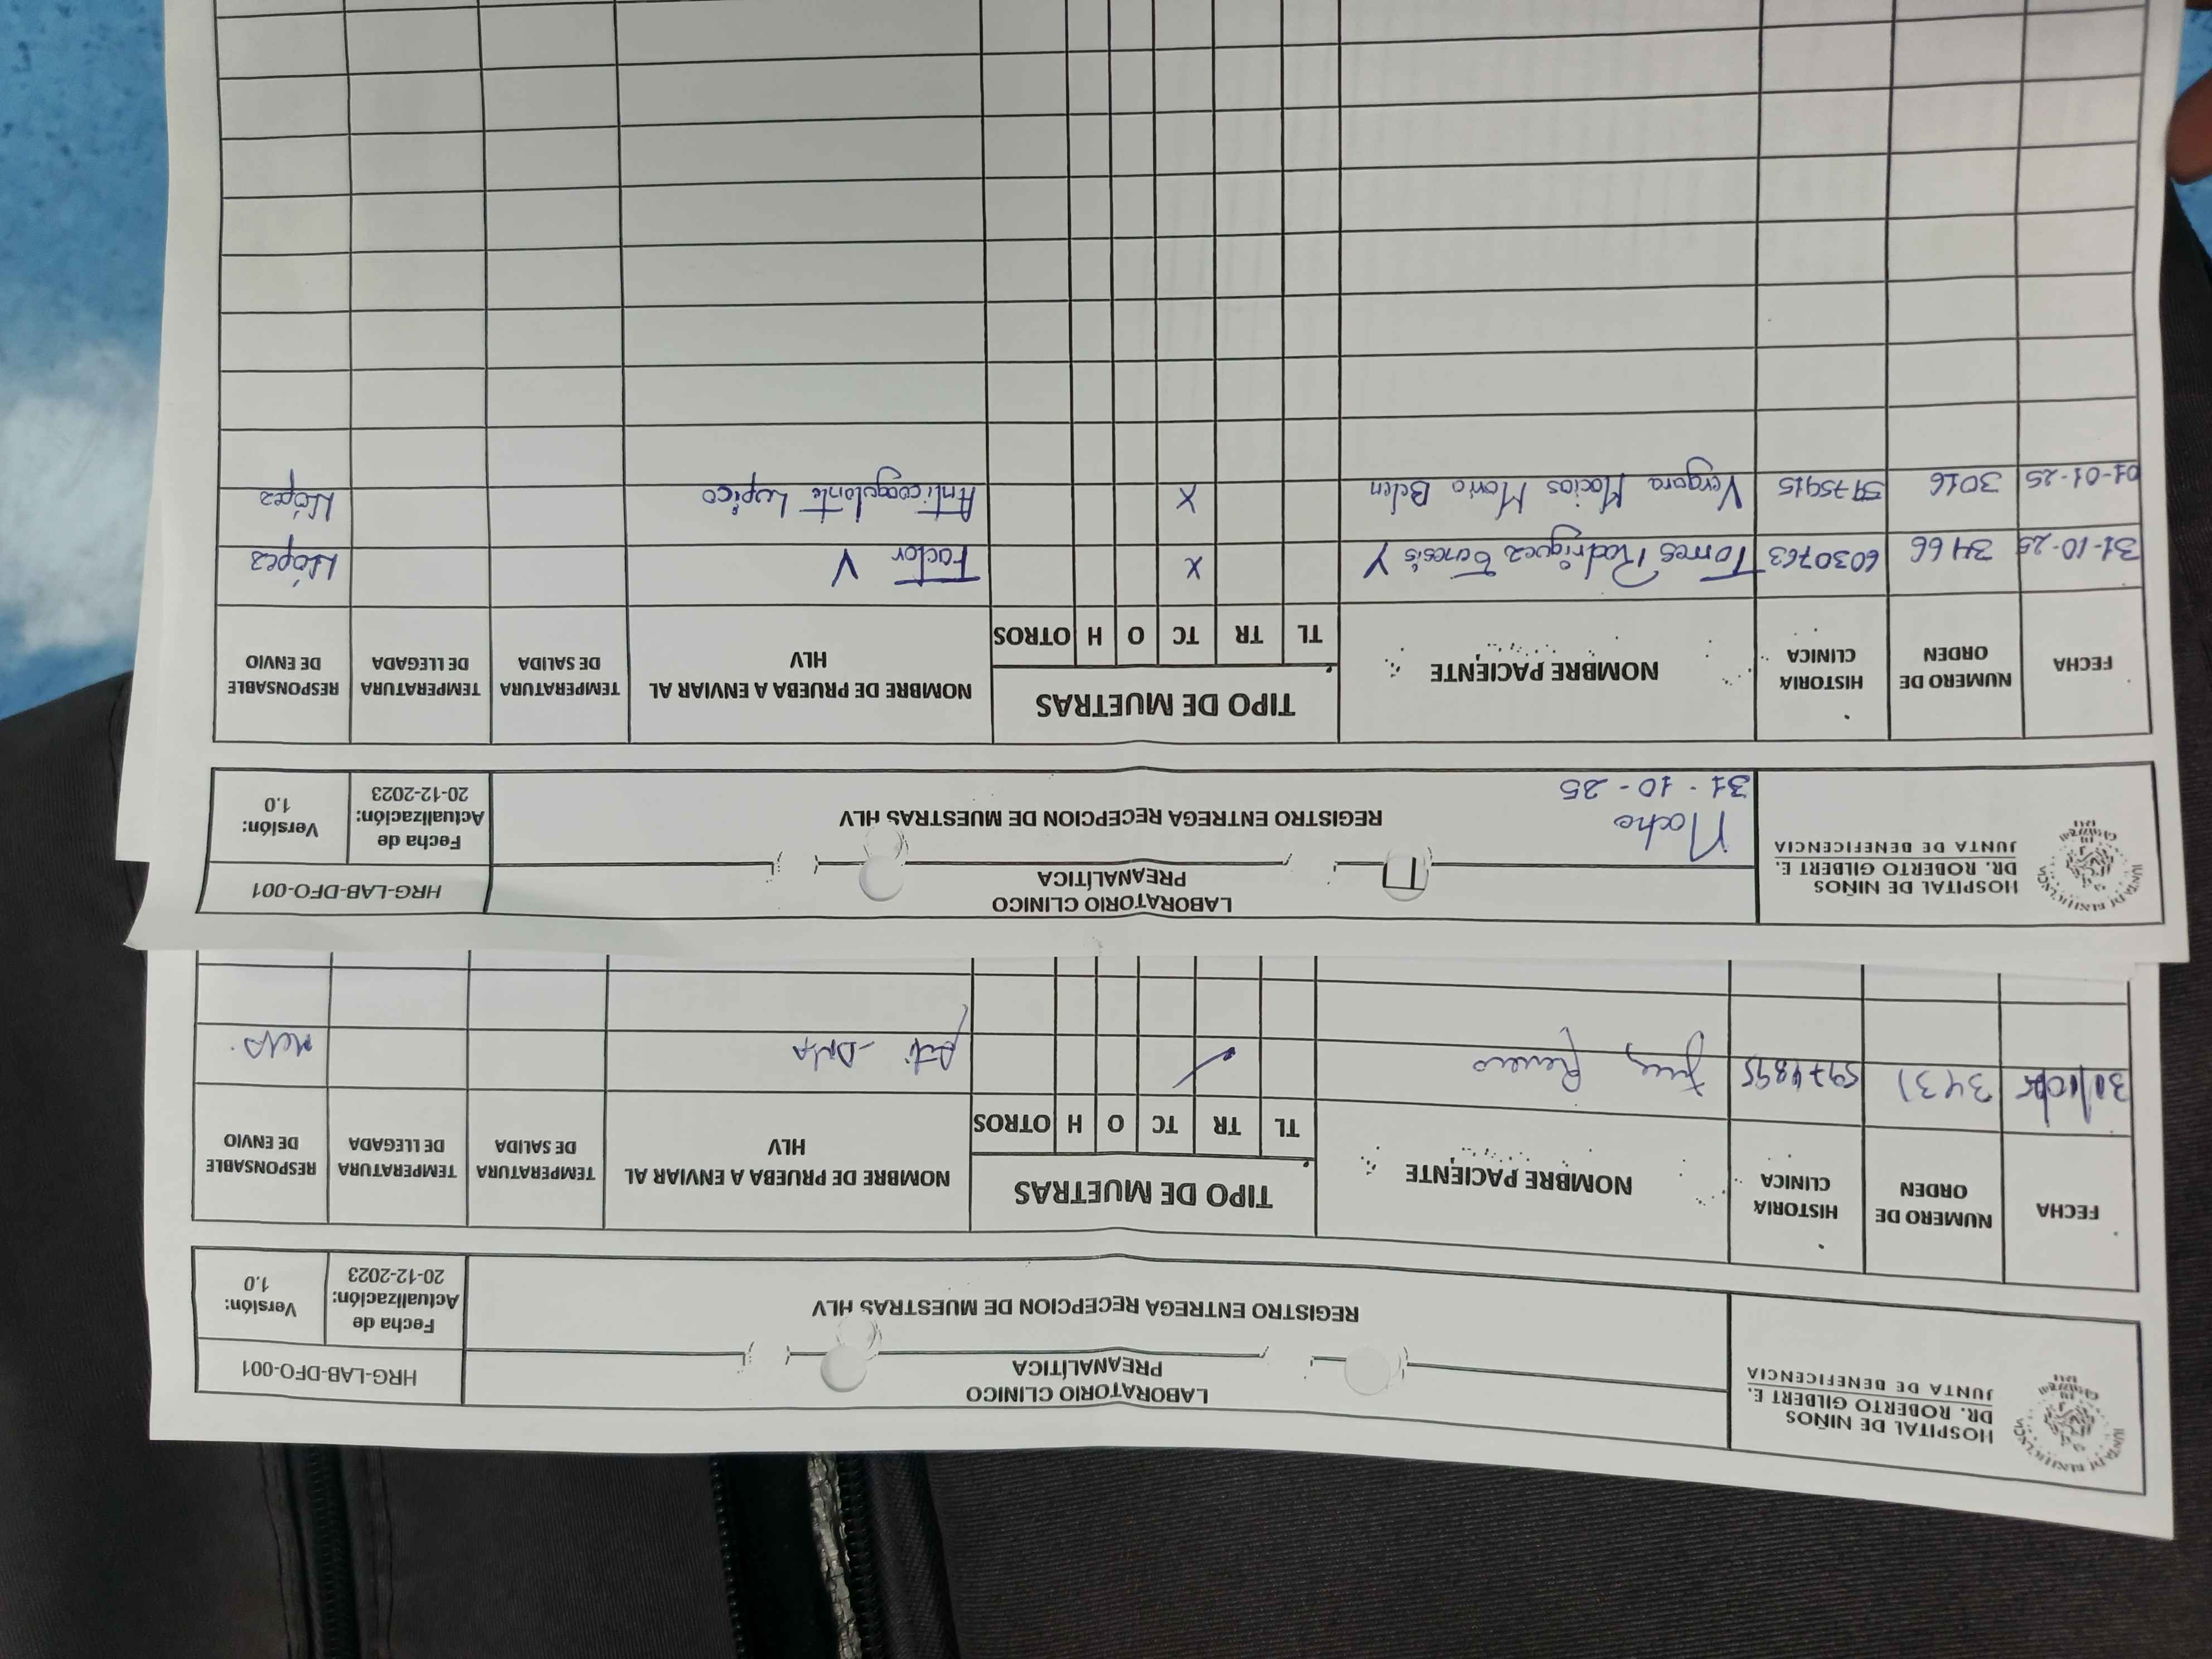 HOSPITAL DE NIÑOS
DR. ROBERTO GILBERT E.
JUNTA DE BENEFICENCIA
LABORATORIO CLINICO
PREANALÍTICA
HRG-LAB-DFO-001
REGISTRO ENTREGA RECEPCION DE MUESTRAS HLV
Fecha de
Actualización:
20-12-2023
Versión:
1.0
FECHA
NUMERO DE
ORDEN
HISTORIA
CLINICA
NOMBRE PACIENTE
TIPO DE MUETRAS
TL TR TC O H OTROS
NOMBRE DE PRUEBA A ENVIAR AL
HLV
TEMPERATURA
DE SALIDA
TEMPERATURA
DE LLEGADA
RESPONSABLE
DE ENVIO
3431 5974895 Anti-DNA
HOSPITAL DE NIÑOS
DR. ROBERTO GILBERT E.
JUNTA DE BENEFICENCIA
LABORATORIO CLINICO
PREANALÍTICA
HRG-LAB-DFO-001
Noche
31-10-25
REGISTRO ENTREGA RECEPCION DE MUESTRAS HLV
Fecha de
Actualización:
20-12-2023
Versión:
1.0
FECHA
NUMERO DE
ORDEN
HISTORIA
CLINICA
NOMBRE PACIENTE
TIPO DE MUETRAS
TL TR TC O H OTROS
NOMBRE DE PRUEBA A ENVIAR AL
HLV
TEMPERATURA
DE SALIDA
TEMPERATURA
DE LLEGADA
RESPONSABLE
DE ENVIO
31-10-25 3466 6030763 Torres Rodriguez Genesis Y X Factor V
01-01-25 3016 5975915 Vergara Macias Maria Belen X Anticoagulante Lupico